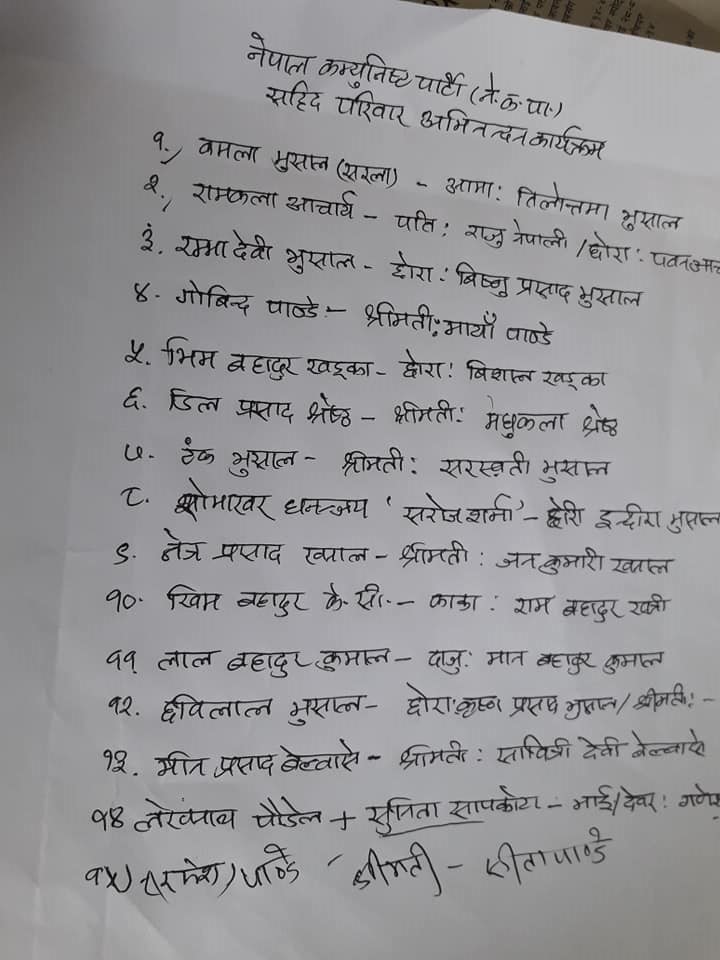 नेपाल कम्युनिष्ट पार्टी (ने.क.पा.)
सहिद परिवार अभिनन्दन कार्यक्रम
१., वमला भुसाल (सरला) - आमा: तिलोत्तमा भुसाल
२., रामकला आचार्य - पति: राजु नेपाली / छोरा: पवन
३. रम्मा देवी भुसाल - छोरा: बिष्णु प्रसाद भुसाल
४. गोबिन्द पाण्डे - श्रीमती: माया पाण्डे
५. भिम बहादुर खड्का - छोरा: बिशाल खड्का
६. डिल प्रसाद श्रेष्ठ - श्रीमती: मधुकला श्रेष्ठ
७. टंक भुसाल - श्रीमती: सरस्वती भुसाल
८. सोमाखर धनन्जय 'सरोज शर्मा' - छोरी इन्दीरा भुसाल
९. नेत्र प्रसाद खनाल - श्रीमती: जन कुमारी खनाल
१०. खिम बहादुर के.सी. - काका: राम बहादुर खत्री
११ लाल बहादुर कुमाल - दाजु: मान बहादुर कुमाल
१२. छविलाल भुसाल - छोरा: कृष्ण प्रसाद भुसाल / श्रीमती: -
१३. मीन प्रसाद बेल्वासे - श्रीमती: सावित्री देवी बेल्वासे
१४ लेखनाथ पौडेल + सुनिता सापकोटा - भाई/देवर: गणेश
१५ पाण्डे श्रीमती - सीता पाण्डे